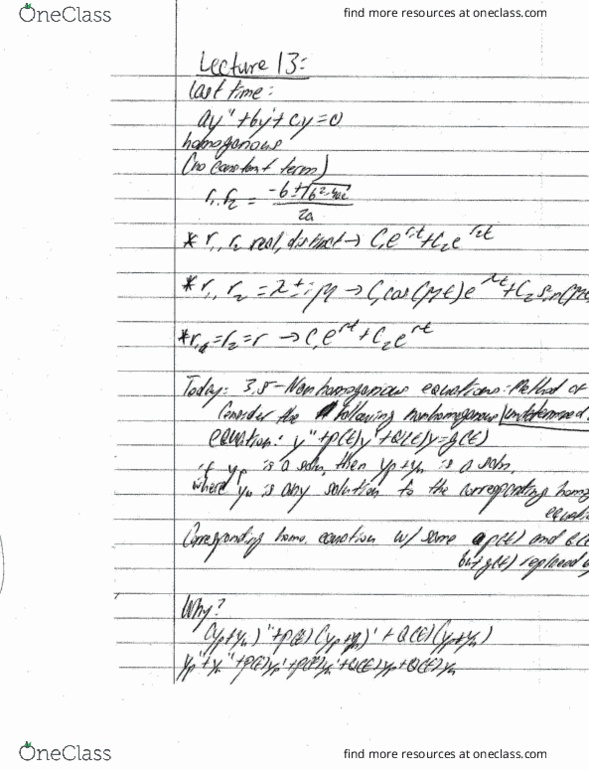 OneClass
find more resources at oneclass.com
Lecture 13:
last time:
ay" + by' + cy = 0
homogenous
(no constant term)
r₁, r₂ = -b ± √b²-4ac / 2a
* r₁, r₂ real, distinct → C₁e^r₁t + C₂e^r₂t
* r₁, r₂ = λ ± iμ → C₁cos(μt)e^λt + C₂sin(μt
* r₁ = r₂ = r → C₁e^rt + C₂e^rt
Today: 3.5 - Nonhomogenous equations: Method of
Consider the following nonhomogenous undetermined
equation: y" + p(t)y' + Q(t)y = g(t)
if yp is a soln, then yp+yh is a soln,
where yh is any solution to the corresponding homo
equatio
Corresponding homo. equation w/ same p(t) and Q(t
but g(t) replaced
Why?
(yp+yh)" + p(t)(yp+yh)' + Q(t)(yp+yh)
yp" + yh" + p(t)yp' + p(t)yh' + Q(t)yp + Q(t)yh
OneClass
find more resources at oneclass.com